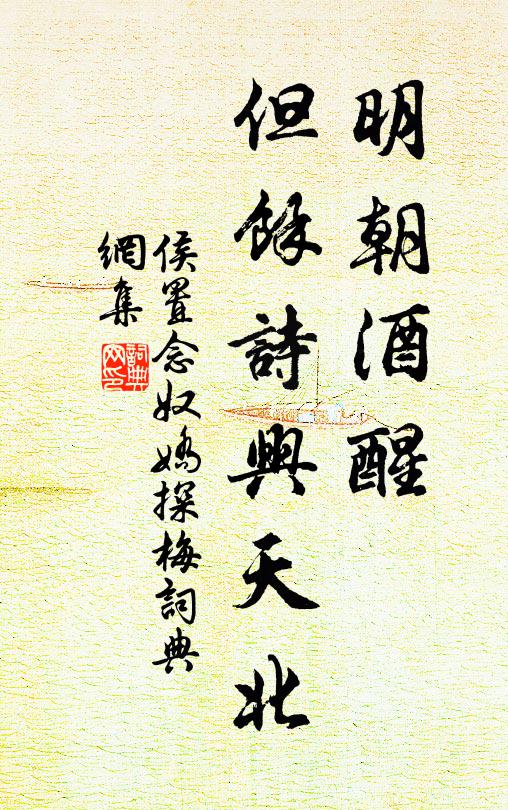 明朝酒醒
但餘詩興天北
侯置念奴嬌探梅詞典
網集
詞典
网印